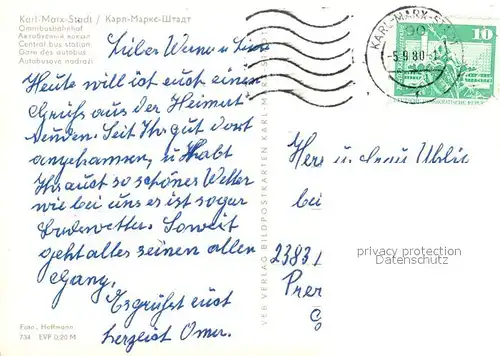 Karl-Marx-Stadt / Карл-Маркс-Штадт
Omnibusbahnhof
Автобусный вокзал
Central bus station
Gare des autobus
Autobusové nádraží
Lieber Werner u. Lisa
Heute will ist euch einen
Gruß aus der Heimat
senden. Seit Ihr gut dort
angekommen, u. Habt
Ihr aust so schönes Wetter
wie bei uns es ist sogar
Badewetter. Soweit
geht alles seinen allen
Gang,
Es grüßt euch
herzlist Oma.
Foto: Hoffmann
734 EVP 0,20 M
VEB VERLAG BILDPOSTKARTEN KARL-MARX-STADT
KARL-MARX-ST
90
-5.9.80-
10
DEMOKRATISCHE REPUBLIK
Herr u. Frau Uhlig
bei
2383
Prer
privacy protection
Datenschutz